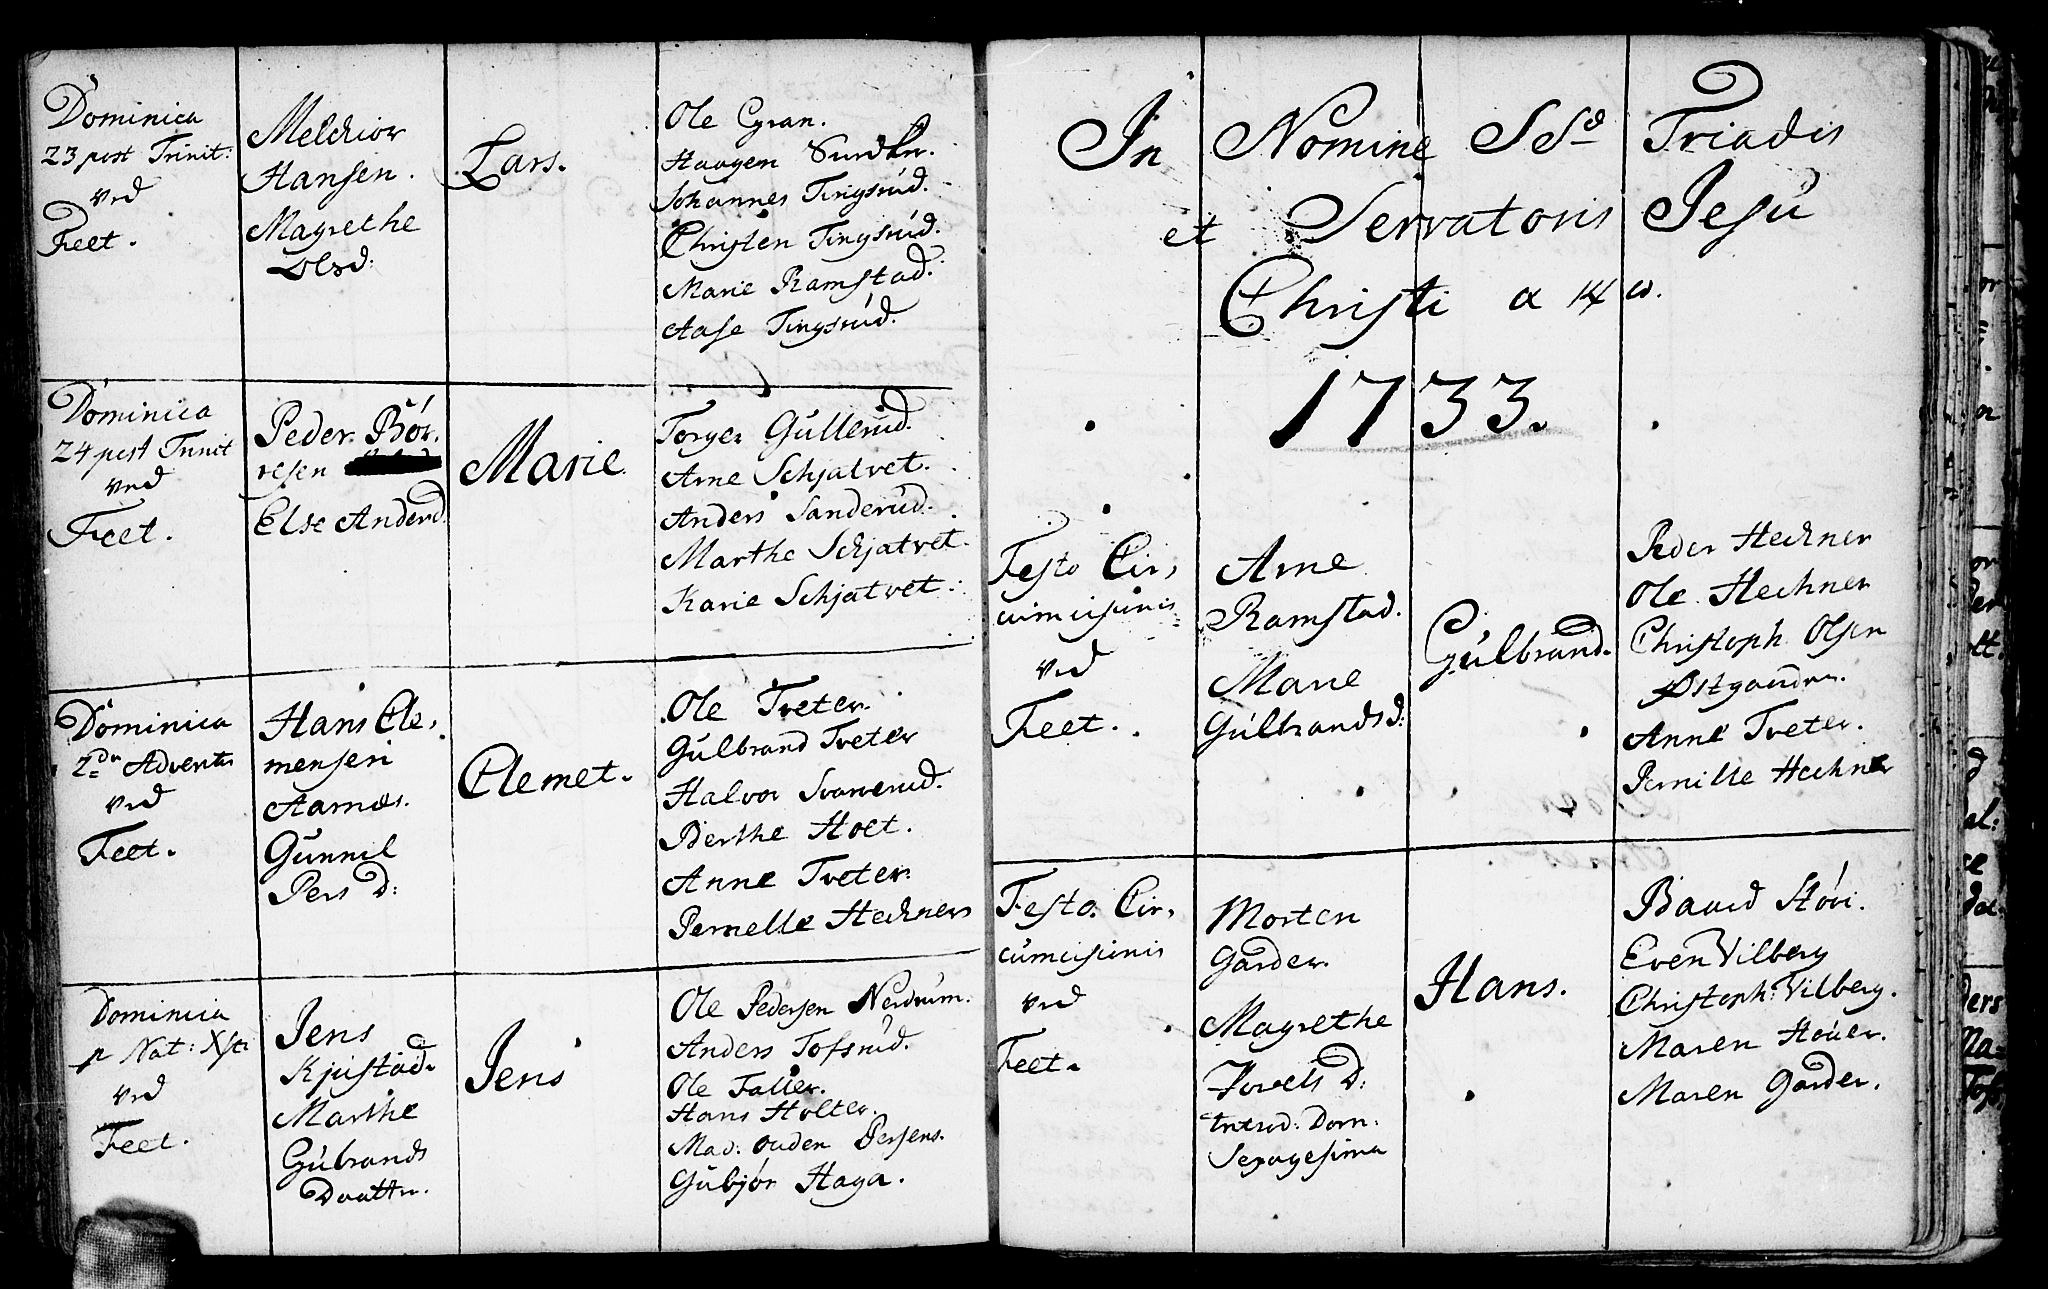 Dominica
23 post Trinit:
ved
Feet.
Melchior
Hansen.
Magrethe
Olsd:
Lars.
Ole Gran.
Haagen
Johannes Tingsrud.
Christen Tingsrud.
Marie Ramstad.
Aase Tingsrud.
Dominica
24 post Trinit
ved
Feet.
Peder Bör,
resen
Else Andersd
Marie
Torger Gullerud.
Arne Schjatvet.
Anders Sanderud.
Marthe Schjatvet.
Karie Schjatvet.
Dominica
2dn Advents
ved
Feet.
Hans Cle,
mensen
Aarnæs.
Gunnil
Pers D:
Clemet.
Ole Tveter.
Gulbrand Tveter
Halvor Svarverud.
Berthe Holt.
Anne Tveter.
Pernelle Hechners
Dominica
p Nat: Xsti
ved
Feet.
Jens
Kjustad.
Marthe
Gulbrands
Daatter.
Jens
Ole Pedersen Nerdrum.
Anders Tofsrud.
Ole Faller.
Hans Holter.
Mad: Ouden Persens.
Gubjør Haga.
In Nomine SSæ Triadis
et Servatoris Jesu
Christi α ω.
1733.
Festo Cir,
cumcisionis
ved
Feet.
Arne
Ramstad.
Marie
Gulbrandsd:
Gulbrand.
Peder Hechner
Ole Hechner
Christoph Olsen
Østgaarden.
Anne Tveter.
Pernille Hechner
Festo Cir,
cumcisionis
ved
Feet.
Morten
Garder.
Magrethe
Joels D:
Introd: Dom.
Sexagesima
Hans.
Baard Hövi.
Even Vilberg
Christoph: Vilberg.
Maren Höuer.
Maren Garder.